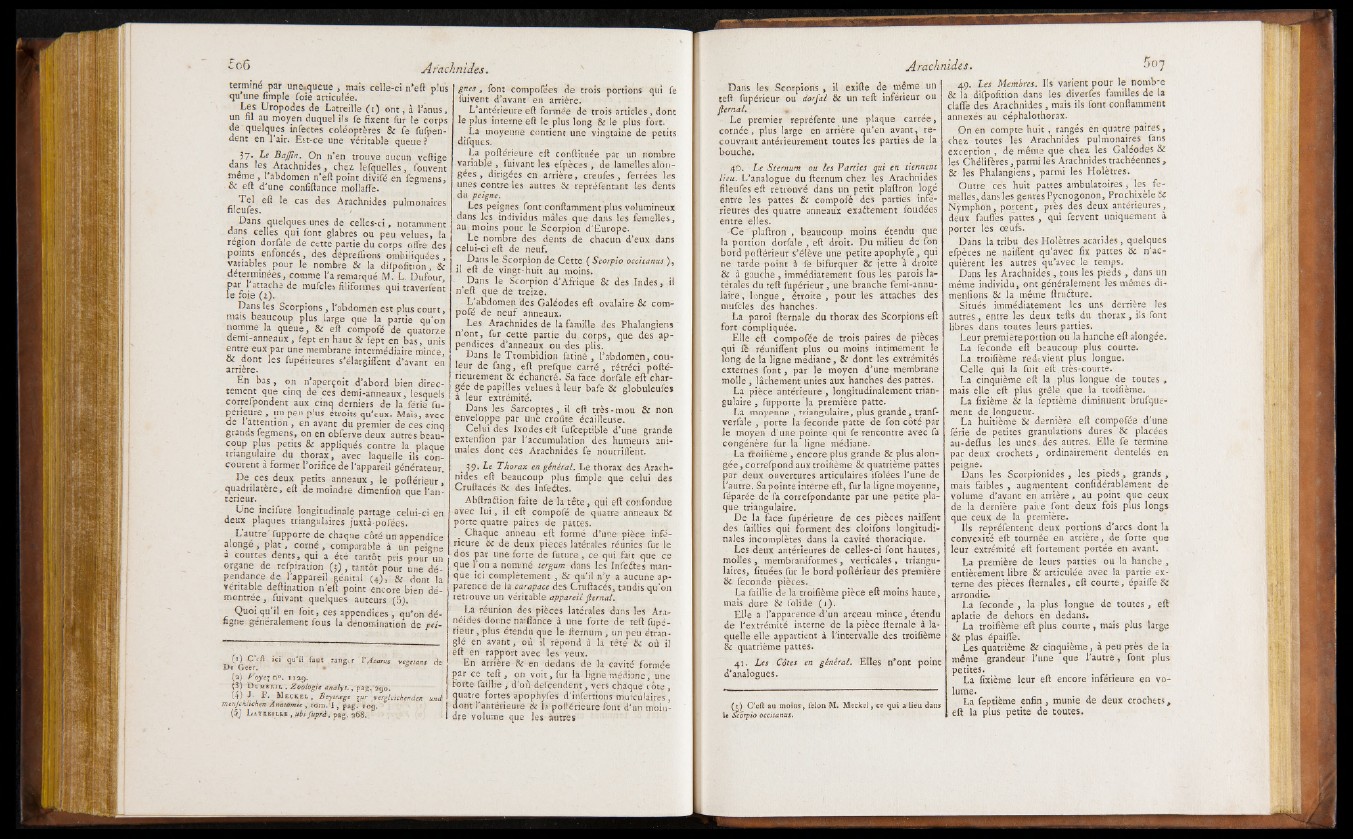 506
Arachnides.
terminé par une queue, mais celle-ci n'eſt plus
qu'une ſimple ſoie articulée.
Les Uropodes de Latreille (1) ont, à l'anus,
un fil au moyen duquel ils ſe fixent ſur le corps
de quelques inſectes coléoptères & ſe ſuſpen-
dent en l'air. Eſt-ce une véritable queue?
37. Le Baſſin. On n'en trouve aucun veſtige
dans les Arachnides, chez leſquelles, ſouvent
même, l'abdomen n'eſt point diviſé en ſegmens,
& eſt d'une conſiſtance mollaſſe.
Tel eſt le cas des Arachnides pulmonaires
fileuſes.
Dans quelques unes de celles-ci, notamment
dans celles qui ſont glabres ou peu velues, la
région dorſale de cette partie du corps offre des
points enfoncés, des dépreſſions ombiliquées,
variables pour le nombre & la diſpoſition, &
déterminées, comme l'a remarqué M. L. Dufour,
par l'attache de muſcles filiformes qui traverſent
le foie (2).
Dans les Scorpions, l'abdomen est plus court,
mais beaucoup plus large que la partie qu'on
nomme la queue, & eſt compoſé de quatorze
demi-anneaux, ſept en haut & ſept en bas, unis
entre eux par une membrane intermédiaire mince,
& dont les ſupérieures s'élargiſſent d'avant en
arrière.
En bas, on n'aperçoit d'abord bien direc-
tement que cinq de ces demi-anneaux, leſquels
correſpondent aux cinq derniers de la ſérie ſu-
périeure, un peu plus étroits qu'eux. Mais, avec
de l'attention, en avant du premier de ces cinq
grands ſegmens, on en obſerve deux autres beau-
coup plus petits & appliqués contre la plaque
triangulaire du thorax, avec laquelle ils con-
courent à former l'orifice de l'appareil générateur.
De ces deux petits anneaux, le poſtérieur,
quadrilatère, eſt de moindre dimenſion que l'an-
térieur.
Une inciſure longitudinale partage celui-ci en
deux plaques triangulaires juxtà-poſées.
L'autre ſupporte de chaque côté un appendice
alongé, plat, corné, comparable à un peigne
à courtes dents, qui a été tantôt pris pour un
organe de reſpiration (3), tantôt pour une dé-
pendance de l'appareil génital (4), & dont la
véritable deſtination n'eſt point encore bien dé-
montrée, ſuivant quelques auteurs (5).
Quoi qu'il en ſoit, ces appendices, qu'on dé-
ſigne généralement ſous la dénomination de pei-
(1) C'eſt ici qu'il faut ranger l'Acarus vegetans de
De Geer.
(2) Voyez nº. 1129.
(3) Dumeril, Zoologie analyt., pag. 290.
(4) J. F. Meckel, Beytrage zur vergleichenden und
menſchlichen Anatomie, tom. I, pag. 109.
(5) Latreille, ubi ſuprà, pag. 268.
gnes, ſont compoſées de trois portions qui ſe
ſuivent d'avant en arrière.
L'antérieure eſt formée de trois articles, dont
le plus interne eſt le plus long & le plus fort.
La moyenne contient une vingtaine de petits
diſques.
La poſtérieure eſt conſtituée par un nombre
variable, ſuivant les eſpèces, de lamelles alon-
gées, dirigées en arrière, creuſes, ſerrées les
unes contre les autres & repréſentant les dents
du peigne.
Les peignes ſont conſtamment plus volumineux
dans les individus mâles que dans les femelles,
au moins pour le Scorpion d'Europe.
Le nombre des dents de chacun d'eux dans
celui-ci eſt de neuf.
Dans le Scorpion de Cette (Scorpio occitanus),
il eſt de vingt-huit au moins.
Dans le Scorpion d'Afrique & des Indes, il
n'eſt que de treize.
L'abdomen des Galéodes eſt ovalaire & com-
poſé de neuf anneaux.
Les Arachnides de la famille des Phalangiens
n'ont, ſur cette partie du corps, que des ap-
pendices d'anneaux ou des plis.
Dans le Trombidion ſatiné, l'abdomen, cou-
leur de ſang, eſt preſque carré, rétréci poſté-
rieurement & échancré. Sa face dorſale eſt char-
gée de papilles velues à leur baſe & globuleuſes
à leur extrémité.
Dans les Sarcoptes, il eſt très-mou & non
enveloppé par une croûte écailleuſe.
Celui des Ixodes eſt ſuſceptible d'une grande
extenſion par l'accumulation des humeurs ani-
males dont ces Arachnides ſe nourriſſent.
39. Le Thorax en général. Le thorax des Arach-
nides eſt beaucoup plus ſimple que celui des
Cruſtacés & des Inſectes.
Abſtraction faite de la tête, qui eſt confondue
avec lui, il eſt compoſé de quatre anneaux &
porte quatre paires de pattes.
Chaque anneau eſt formé d'une pièce infé-
rieure & de deux pièces latérales réunies ſur le
dos par une ſorte de ſuture, ce qui fait que ce
que l'on a nommé tergum dans les Inſectes man-
que ici complétement, & qu'il n'y a aucune ap-
parence de la carapace des Cruſtacés, tandis qu'on
retrouve un véritable appareil ſternal.
La réunion des pièces latérales dans les Ara-
néides donne naiſſance à une ſorte de teſt ſupé-
rieur, plus étendu que le ſternum, un peu étran-
glé en avant, où il répond à la tête & où il
eſt en rapport avec les yeux.
En arrière & en dedans de la cavité formée
par ce teſt, on voit, ſur la ligne médiane, une
forte ſaillie, d'où deſcendent, vers chaque côté,
quatre fortes apophyſes d'inſertions muſculaires,
dont l'antérieure & la poſtérieure ſont d'un moin-
dre volume que les autres
Arachnides.
507
Dans les Scorpions, il exiſte de même un
teſt ſupérieur ou dorſal & un teſt inférieur ou
ſternal.
Le premier repréſente une plaque carrée,
cornée, plus large en arrière qu'en avant, re-
couvrant antérieurement toutes les parties de la
bouche.
40. Le Sternum ou les Parties qui en tiennent
lieu. L'analogue du ſternum chez les Arachnides
fileuſes eſt retrouvé dans un petit plaſtron logé
entre les pattes & compoſé des parties infé-
rieures des quatre anneaux exactement ſoudées
entre elles.
Ce plaſtron, beaucoup moins étendu que
la portion dorſale, eſt droit. Du milieu de ſon
bord poſtérieur s'élève une petite apophyſe, qui
ne tarde point à ſe bifurquer & jette à droite
& à gauche, immédiatement ſous les parois la-
térales du teſt ſupérieur, une branche ſemi-annu-
laire, longue, étroite, pour les attaches des
muſcles des hanches.
La paroi ſternale du thorax des Scorpions eſt
fort compliquée.
Elle eſt compoſée de trois paires de pièces
qui ſe réuniſſent plus ou moins intimement le
long de la ligne médiane, & dont les extrémités
externes ſont, par le moyen d'une membrane
molle, lâchement unies aux hanches des pattes.
La pièce antérieure, longitudinalement trian-
gulaire, ſupporte la première patte.
La moyenne, triangulaire, plus grande, tranſ-
verſale, porte la ſeconde patte de ſon côté par
le moyen d'une pointe qui ſe rencontre avec ſa
congénère ſur la ligne médiane.
La troiſième, encore plus grande & plus alon-
gée, correſpond aux troiſième & quatrième pattes
par deux ouvertures articulaires iſolées l'une de
l'autre. Sa pointe interne eſt, ſur la ligne moyenne,
ſéparée de ſa correſpondante par une petite pla-
que triangulaire.
De la face ſupérieure de ces pièces naiſſent
des ſaillies qui forment des cloiſons longitudi-
nales incomplètes dans la cavité thoracique.
Les deux antérieures de celles-ci ſont hautes,
molles, membraniformes, verticales, triangu-
laires, ſituées ſur le bord poſtérieur des première
& ſeconde pièces.
La ſaillie de la troiſième pièce eſt moins haute,
mais dure & ſolide (1).
Elle a l'apparence d'un arceau mince, étendu
de l'extrémité interne de la pièce ſternale à la-
quelle elle appartient à l'intervalle des troiſième
& quatrième pattes.
41. Les Côtes en général. Elles n'ont point
d'analogues.
(1) C'eſt au moins, ſelon M. Meckel, ce qui a lieu dans
le Scorpio occitanus.
49. Les Membres. Ils varient pour le nombre
& la diſpoſition dans les diverſes familles de la
claſſe des Arachnides, mais ils ſont conſtamment
annexés au céphalothorax.
On en compte huit, rangés en quatre paires,
chez toutes les Arachnides pulmonaires ſans
exception, de même que chez les Galéodes &
les Chélifères, parmi les Arachnides trachéennes,
& les Phalangiens, parmi les Holètres.
Outre ces huit pattes ambulatoires, les fe-
melles, dans les genres Pycnogonon, Phoxichèle &
Nymphon, portent, près des deux antérieures,
deux fauſſes pattes, qui ſervent uniquement à
porter les œufs.
Dans la tribu des Holètres acarides, quelques
eſpèces ne naiſſent qu'avec ſix pattes & n'ac-
quièrent les autres qu'avec le temps.
Dans les Arachnides, tous les pieds, dans un
même individu, ont généralement les mêmes di-
menſions & la même ſtructure.
Situés immédiatement les uns derrière les
autres, entre les deux teſts du thorax, ils ſont
libres dans toutes leurs parties.
Leur première portion ou la hanche eſt alongée.
La ſeconde eſt beaucoup plus courte.
La troiſième redevient plus longue.
Celle qui la ſuit eſt très-courte.
La cinquième eſt la plus longue de toutes,
mais elle eſt plus grêle que la troiſième.
La ſixième & la ſeptième diminuent bruſque-
ment de longueur.
La huitième & dernière eſt compoſée d'une
ſérie de petites granulations dures & placées
au-deſſus les unes des autres. Elle ſe termine
par deux crochets, ordinairement dentelés en
peigne.
Dans les Scorpionides, les pieds, grands,
mais faibles, augmentent conſidérablement de
volume d'avant en arrière, au point que ceux
de la dernière paire ſont deux fois plus longs
que ceux de la première.
Ils repréſentent deux portions d'arcs dont la
convexité eſt tournée en arrière, de ſorte que
leur extrémité eſt fortement portée en avant.
La première de leurs parties ou la hanche,
entièrement libre & articulée avec la partie ex-
terne des pièces ſternales, eſt courte, épaiſſe &
arrondie.
La ſeconde, la plus longue de toutes, eſt
aplatie de dehors en dedans.
La troiſième eſt plus courte, mais plus large
& plus épaiſſe.
Les quatrième & cinquième, à peu près de la
même grandeur l'une que l'autre, ſont plus
petites.
La ſixième leur eſt encore inférieure en vo-
lume.
La ſeptième enfin, munie de deux crochets,
eſt la plus petite de toutes.